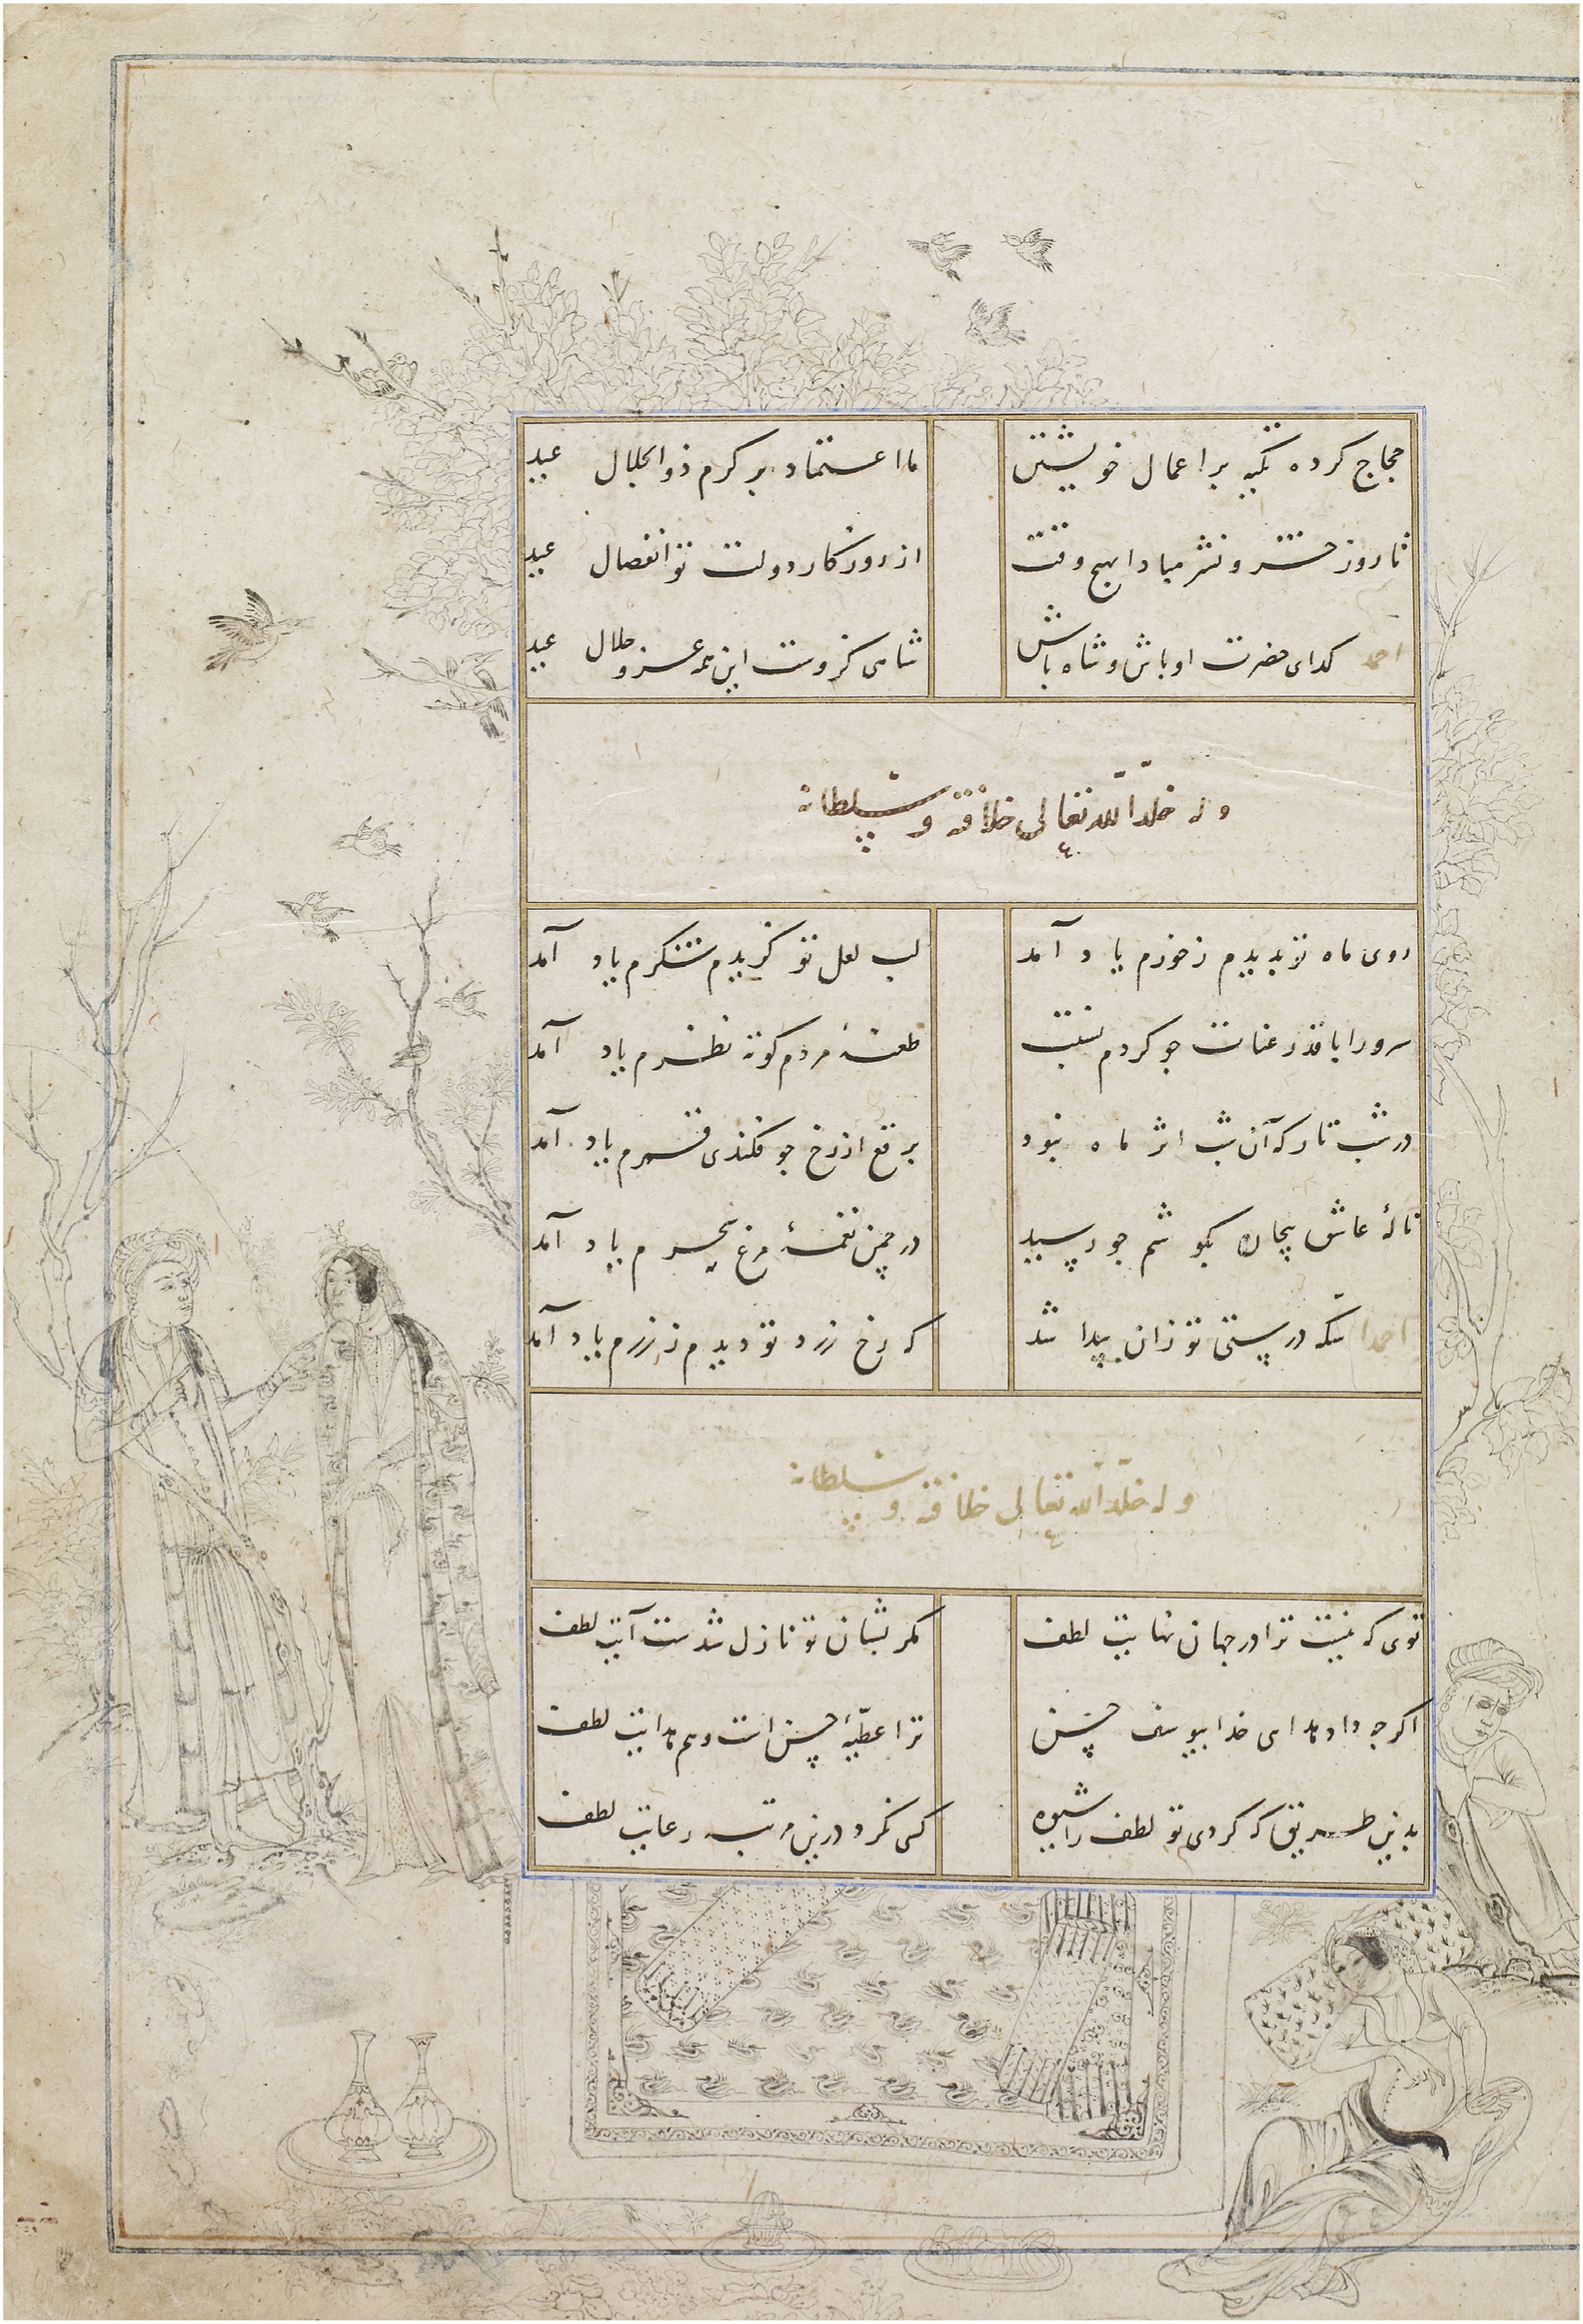 حجاج کرده تکیه بر اعمال خویشتن ما اعتماد بر کرم ذوالجلال عید
تا روز حشر و نشر مبادا بهیچ وقت از روزکار دولت تو انفصال عید
احمد کدای حضرت او باش و شاه باش شاهی کزوست این همه عز و جلال عید
وله خلّد الله تعالی خلافته و سلطانه
روی ماه تو بدیدم ز خورم یاد آمد لب لعل تو کزیدم شکرم یاد آمد
سرو را با قد رعنات جو کردم نسبت طعنهٔ مردم کوته نظرم یاد آمد
در شب تار که آن شب اثر ماه نبود برقع از رخ جو فکندی قمرم یاد آمد
نالهٔ عاشق بیچاره بکوشم جو رسید در چمن نغمهٔ مرغ سحرم یاد آمد
احمدا سکه درستی تو زان پیدا شد که رخ زرد تو دیدم ز زرم یاد آمد
وله خلّد الله تعالی خلافته و سلطانه
توی که نیست ترا در جهان نهایت لطف مکر بشان تو نازل شدست آیت لطف
اکرجه داد خدا بیوسف حسن ترا عطیّهٔ حسن است و هم هدایت لطف
بدین طریق که کردی تو لطف را شیوه کسی نکرد درین مرتبه رعایت لطف